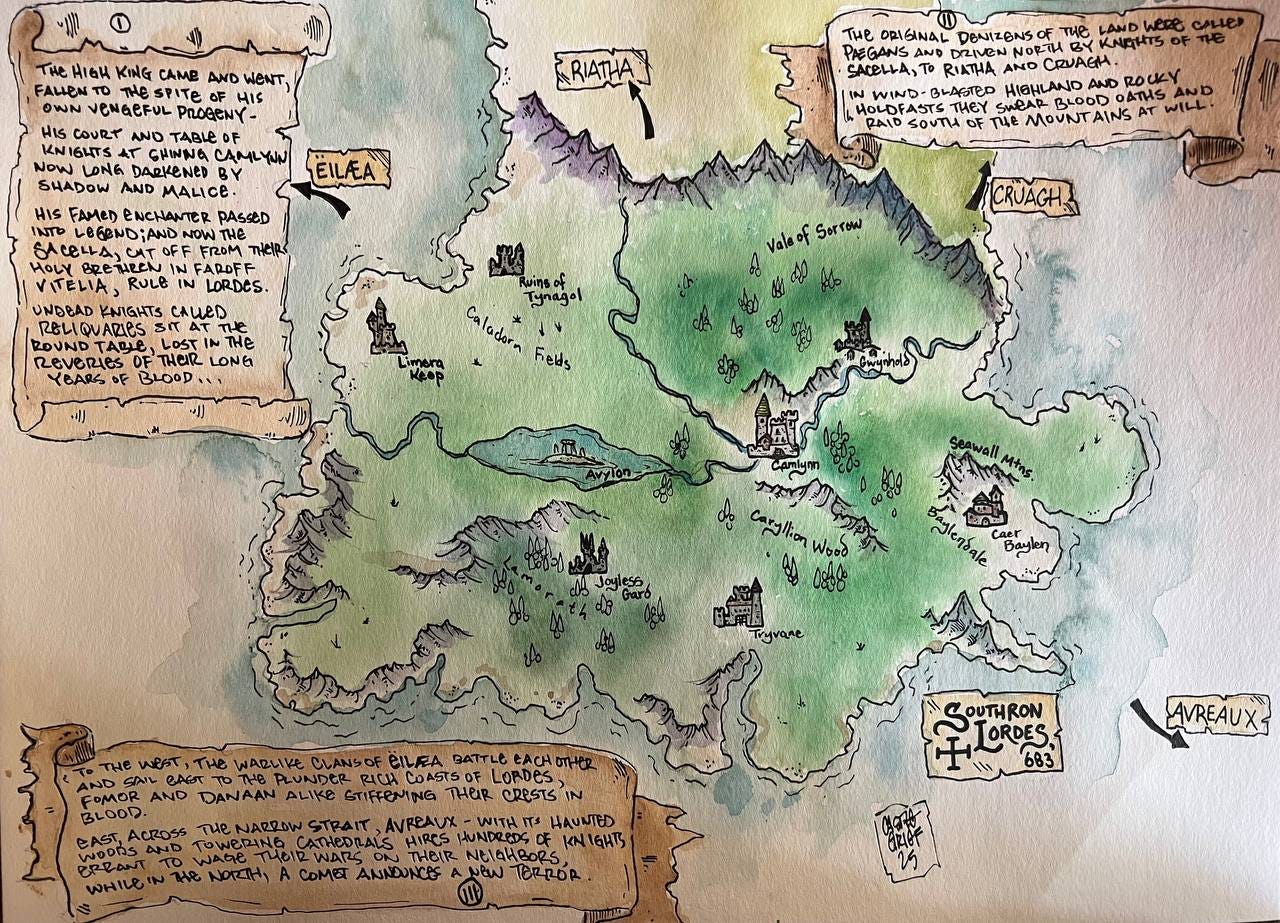 I
THE HIGH KING CAME AND WENT,
FALLEN TO THE SPITE OF HIS
OWN VENGEFUL PROGENY-
HIS COURT AND TABLE OF
KNIGHTS AT GHINNG CAMLYNN
NOW LONG DARKENED BY
SHADOW AND MALICE.
HIS FAMED ENCHANTER PASSED
INTO LEGEND; AND NOW THE
SACELLA, CUT OFF FROM THEIR
HOLY BRETHREN IN FAROFF
VITELIA, RULE IN LORDES.
UNDEAD KNIGHTS CALLED
RELIQUARIES SIT AT THE
ROUND TABLE, LOST IN THE
REVERIES OF THEIR LONG
YEARS OF BLOOD...
II
THE ORIGINAL DENIZENS OF THE LAND WERE CALLED
PÆGANS AND DRIVEN NORTH BY KNIGHTS OF THE
SACELLA, TO RIATHA AND CRUAGH.
IN WIND-BLASTED HIGHLAND AND ROCKY
HOLDFASTS THEY SWEAR BLOOD OATHS AND
RAID SOUTH OF THE MOUNTAINS AT WILL.
RIATHA
ËILÆA
CRUAGH
Vale of Sorrow
Ruins of
Tynagol
Caladorn Fields
Limora
Keep
Gwynhold
Camlynn
Avylon
Seawall Mtns.
Baylendale
Caer
Baylen
Caryllion Wood
Joyless
Gard
Lamorath
Tryvane
SOUTHRON
LORDES,
683
AVREAUX
TO THE WEST, THE WARLIKE CLANS OF ËILÆA BATTLE EACH OTHER
AND SAIL EAST TO THE PLUNDER RICH COASTS OF LORDES,
FOMOR AND DANAAN ALIKE STIFFENING THEIR CRESTS IN
BLOOD.
EAST, ACROSS THE NARROW STRAIT, AVREAUX - WITH ITS HAUNTED
WOODS AND TOWERING CATHEDRALS HIRES HUNDREDS OF KNIGHTS
ERRANT TO WAGE THEIR WARS ON THEIR NEIGHBORS,
WHILE IN THE NORTH, A COMET ANNOUNCES A NEW TERROR.
III
25